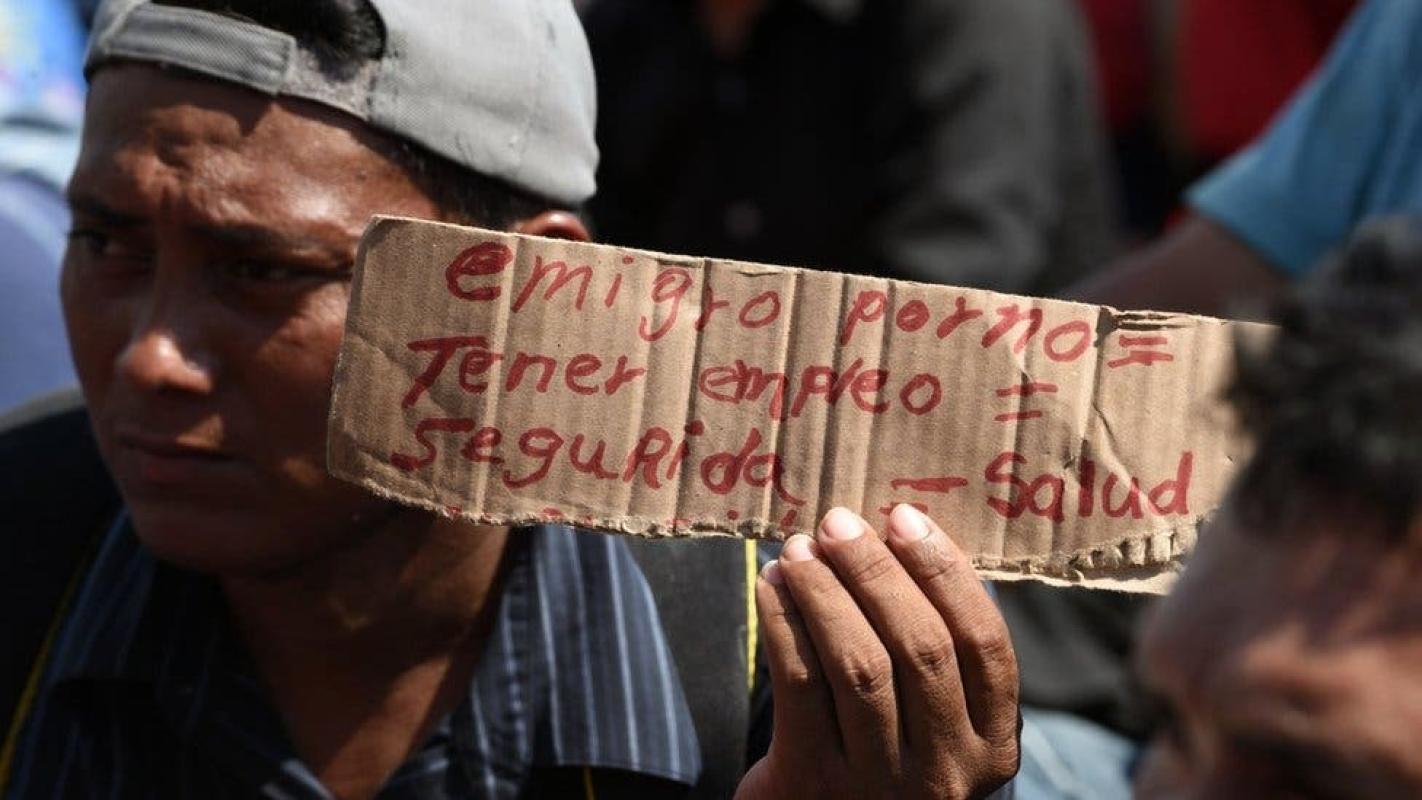 emigro porno =
Tener empleo =
segurida = Salud